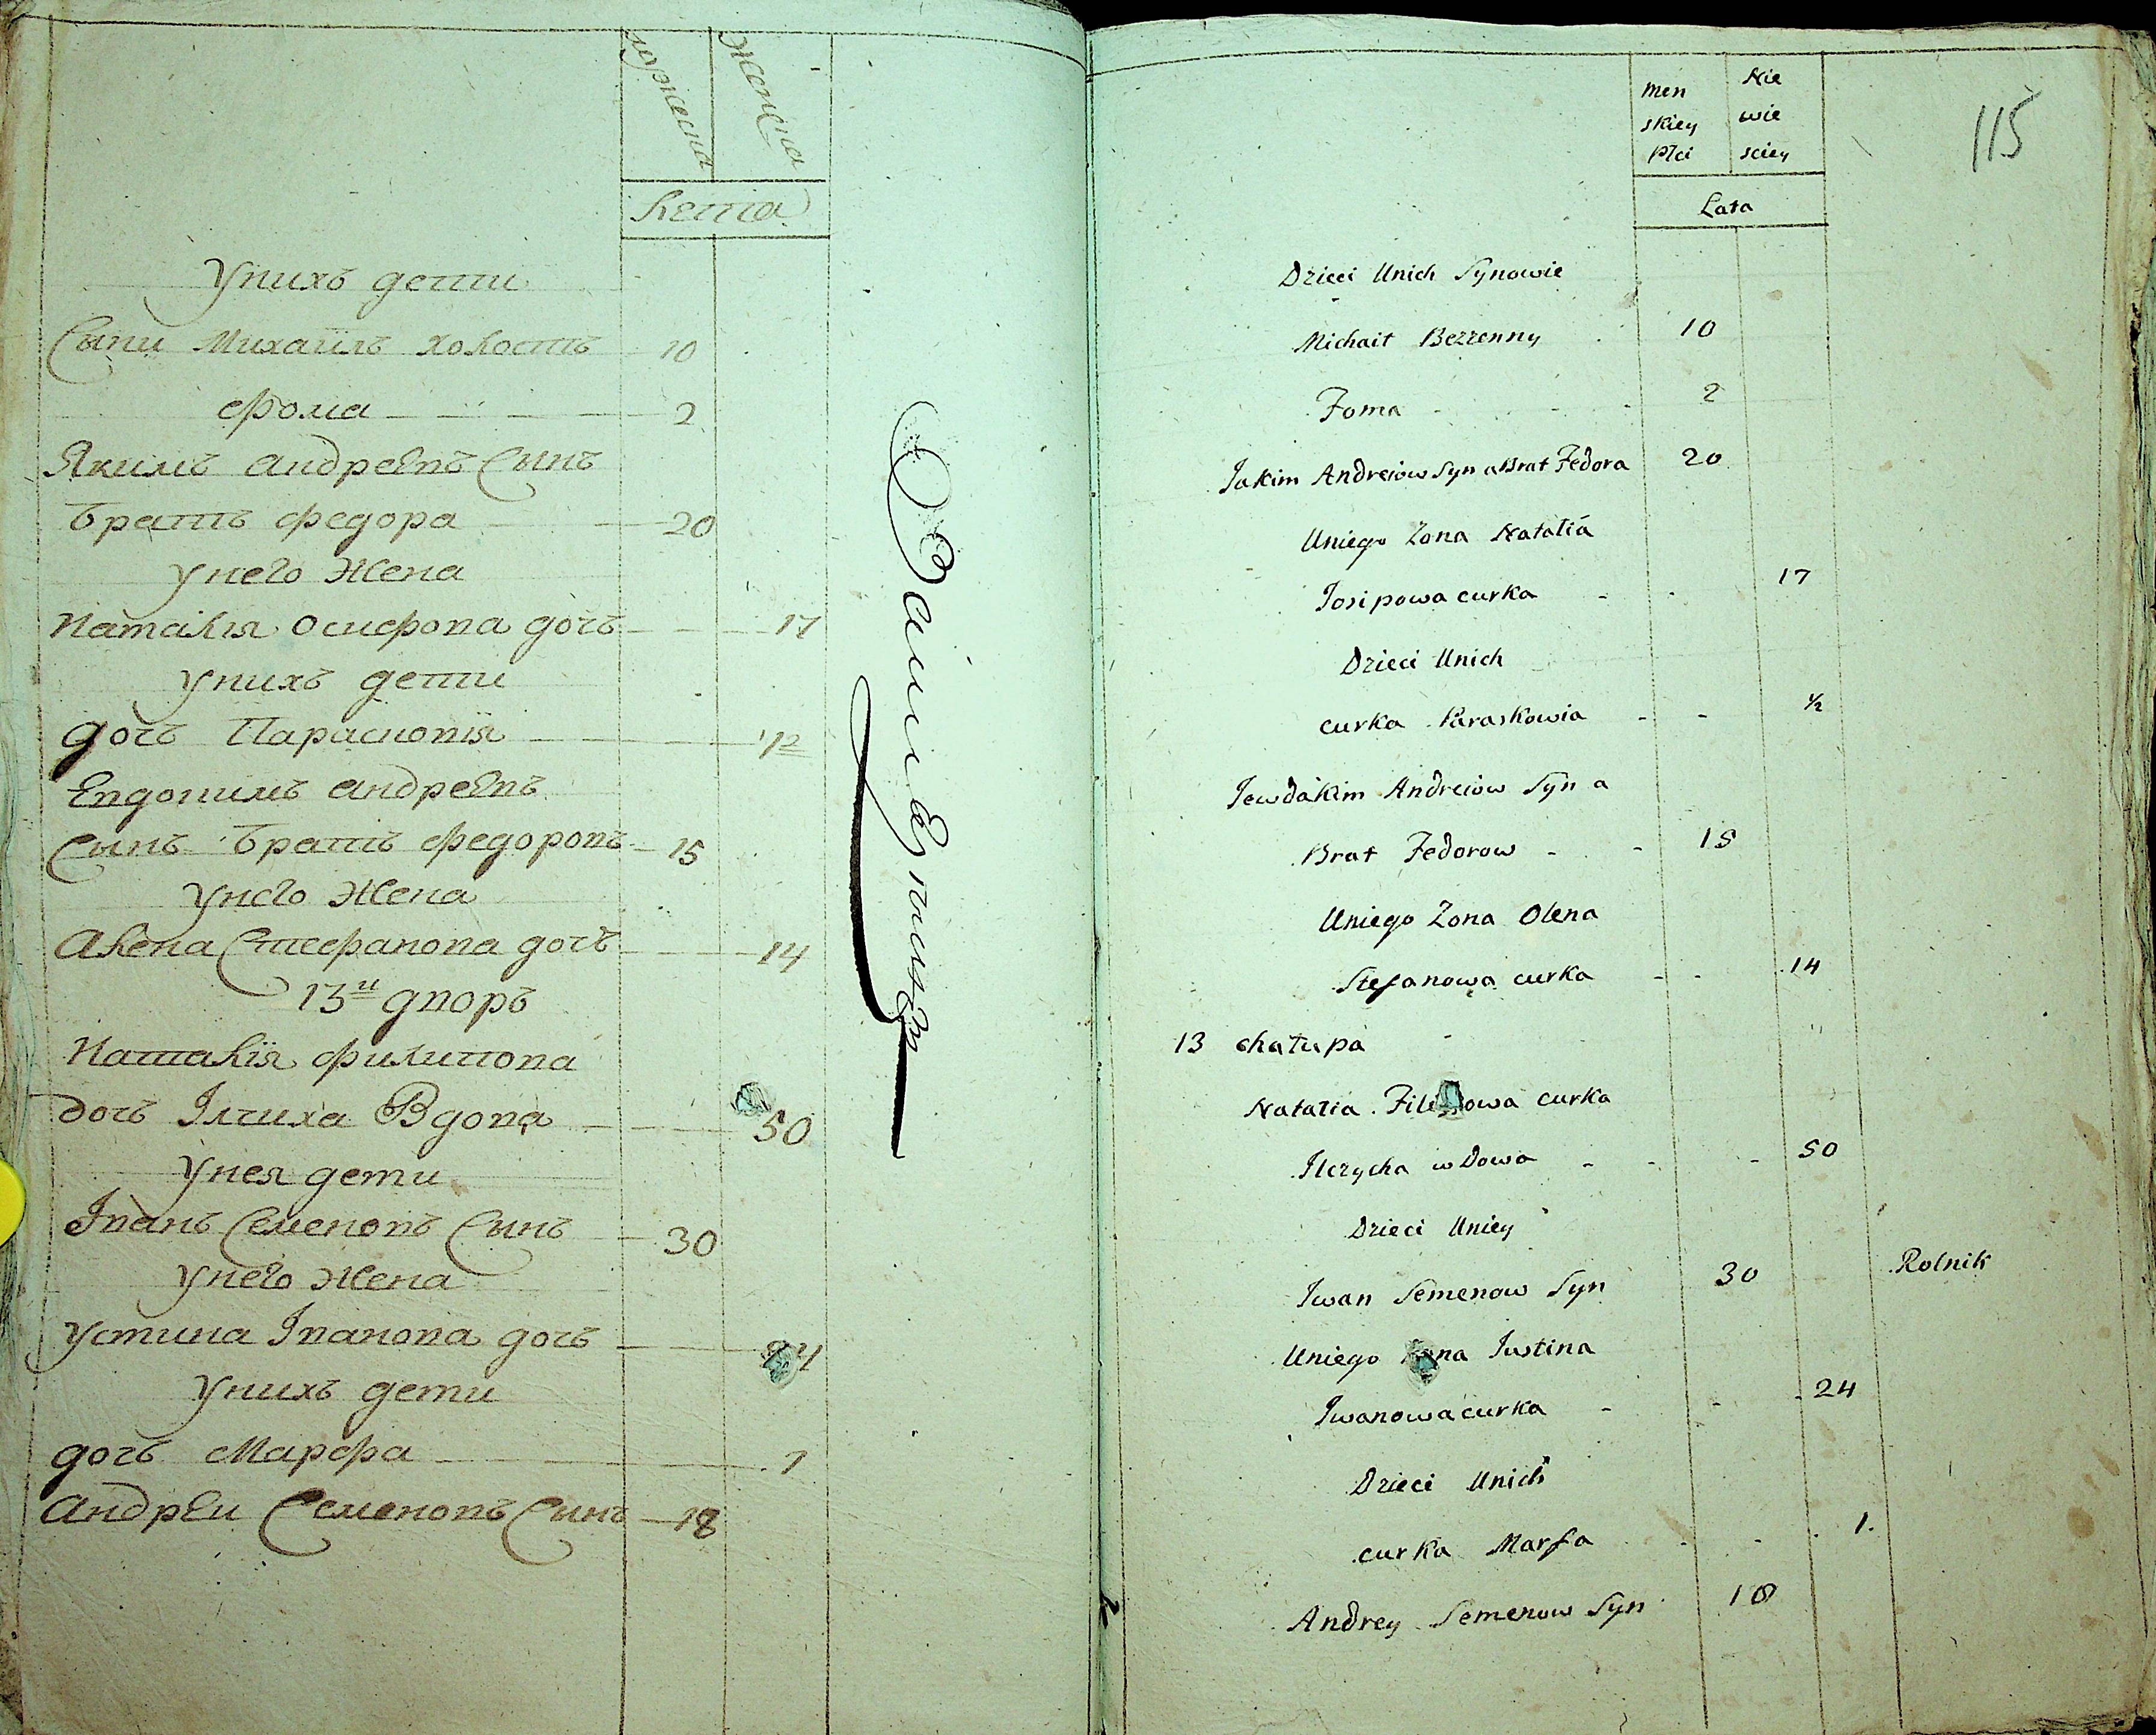 мужеска
женска
Лета
У нихъ дети
Сыни Михаилъ холостъ 10
Фома 2
Якимъ андреевъ Сынъ
братъ федора 20
У него жена
Наталия осифова дочъ 17
У нихъ дети
дочъ Парасковия 1/2
Евдокимъ андреевъ
Сынъ братъ федоровъ 15
У него жена
Алена Стефанова дочъ 14
13й дворъ
Наталия филипова
дочъ Ілчиха Вдова 50
У нея дети
Іванъ Семеновъ Сынъ 30
У него жена
Устина Іванова дочъ 24
У нихъ дети
дочъ Марфа 1
Андреи Семеновъ Сынъ 18
115
men Nie
skiey wie
Płci sciey
Lata
Dzieci Unich Synowie
Michaił Bezzenny 10
Foma 2
Jakim Andreiow Syn a Brat Fedora 20
Uniego Zona Natalia
Josipowa curka 17
Dzieci Unich
curka Paraskowia 1/2
Jewdakim Andreiow Syn a
Brat Fedorow 15
Uniego Zona Olena
Stefanowa curka 14
13 chałupa
Natalia Filipowa curka
Ilczycha wdowa 50
Dzieci Uniey
Iwan Semenow Syn 30 Rolnik
Uniego Zona Justina
Iwanowa curka 24
Dzieci Unich
curka Marfa 1.
Andrey Semenow Syn 18